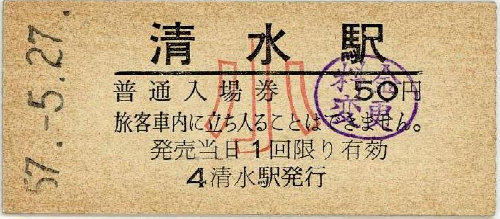 清水駅
普通入場券 50円
旅客車内に立ち入ることはできません。
発売当日1回限り有効
4清水駅発行
小
料金変更
57.-5.27.